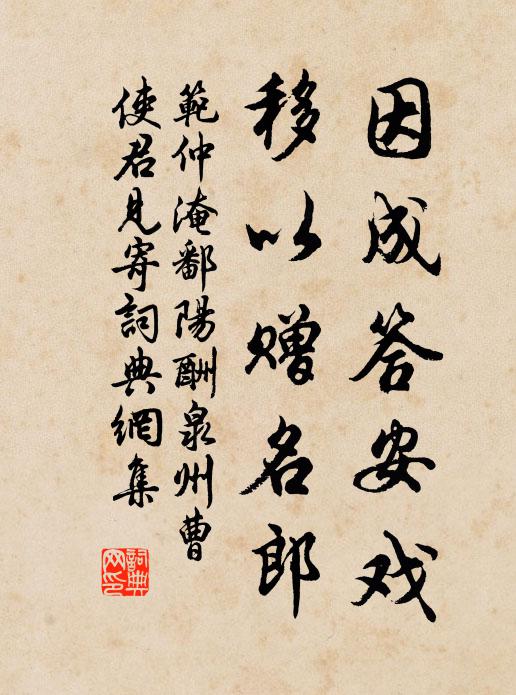 因成答安戏
移以赠名郎
範仲淹鄱陽酬泉州曹
使君見寄詞典網集
詞典
网印